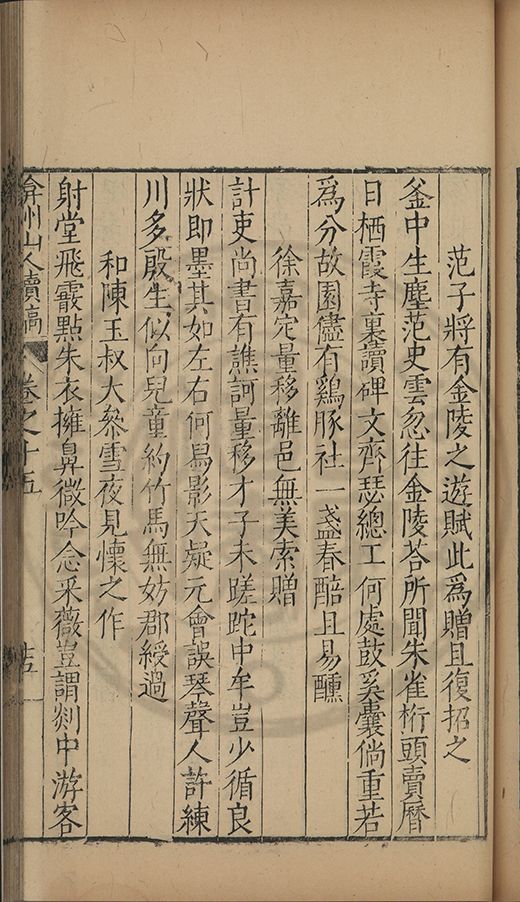 范子將有金陵之遊賦此爲贈且復招之
釜中生塵范史雲忽往金陵荅所聞朱雀桁頭賣曆
日栖霞寺裏讀碑文齊瑟總工何處鼓奚囊倘重若
爲分故園儘有鷄豚社一盞春醅且易醺
徐嘉定量移離邑無美索贈
計吏尚書有譙訶量移才子未蹉跎中牟豈少循良
狀即墨其如左右何舄影天疑元會誤琴聲人許練
川多殷生似向兒童約竹馬無妨郡綬過
和陳玉叔大叅雪夜見懷之作
射堂飛霰點朱衣擁鼻微吟念采薇豈謂剡中游客
弇州山人續稿
卷之十五